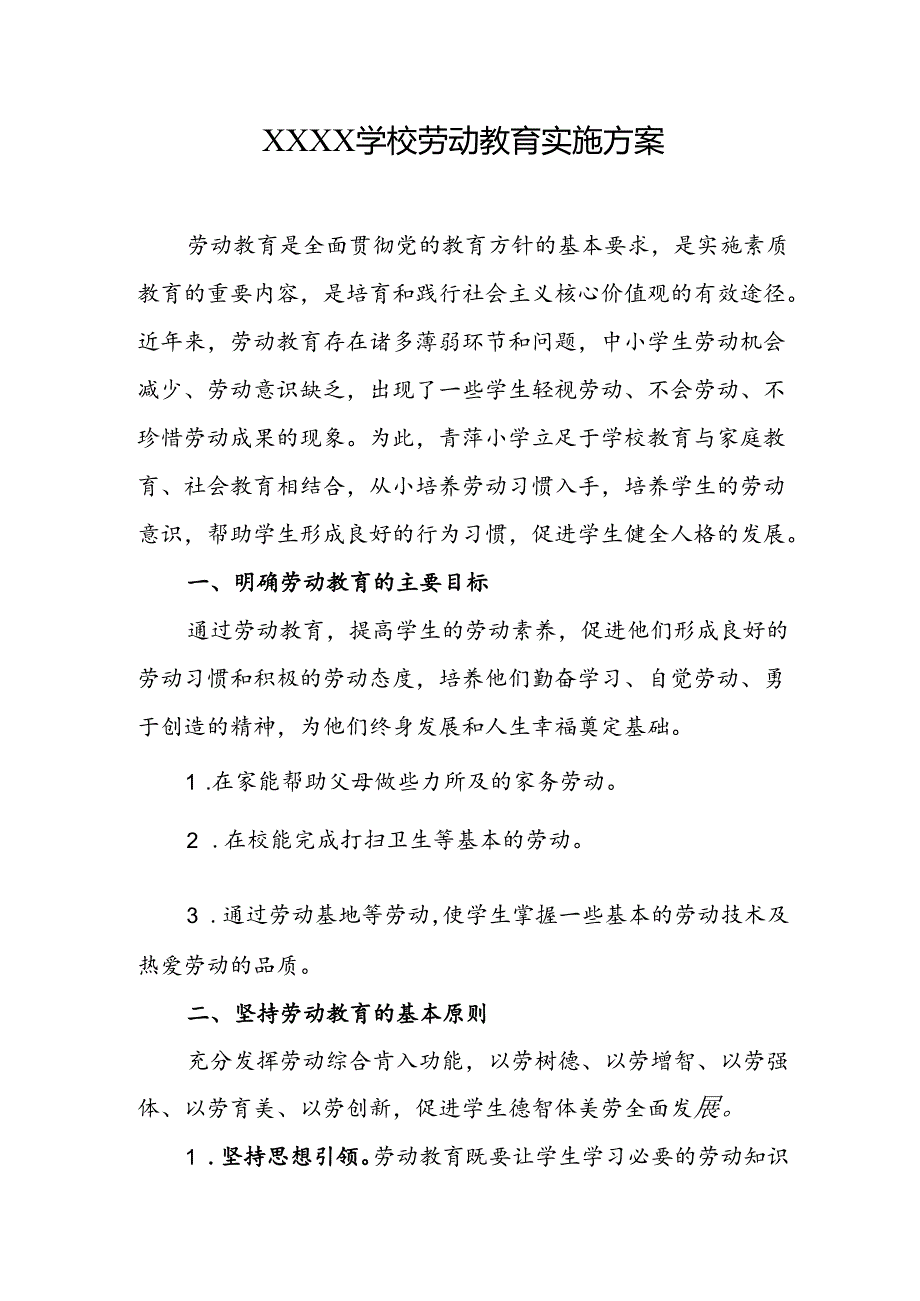 XXXX学校劳动教育实施方案
劳动教育是全面贯彻党的教育方针的基本要求，是实施素质
教育的重要内容，是培育和践行社会主义核心价值观的有效途径。
近年来，劳动教育存在诸多薄弱环节和问题，中小学生劳动机会
减少、劳动意识缺乏，出现了一些学生轻视劳动、不会劳动、不
珍惜劳动成果的现象。为此，青萍小学立足于学校教育与家庭教
育、社会教育相结合，从小培养劳动习惯入手，培养学生的劳动
意识，帮助学生形成良好的行为习惯，促进学生健全人格的发展。
一、明确劳动教育的主要目标
通过劳动教育，提高学生的劳动素养，促进他们形成良好的
劳动习惯和积极的劳动态度，培养他们勤奋学习、自觉劳动、勇
于创造的精神，为他们终身发展和人生幸福奠定基础。
1 .在家能帮助父母做些力所及的家务劳动。
2 .在校能完成打扫卫生等基本的劳动。
3 .通过劳动基地等劳动,使学生掌握一些基本的劳动技术及
热爱劳动的品质。
二、坚持劳动教育的基本原则
充分发挥劳动综合肯入功能，以劳树德、以劳增智、以劳强
体、以劳育美、以劳创新，促进学生德智体美劳全面发展。
1 .坚持思想引领。劳动教育既要让学生学习必要的劳动知识